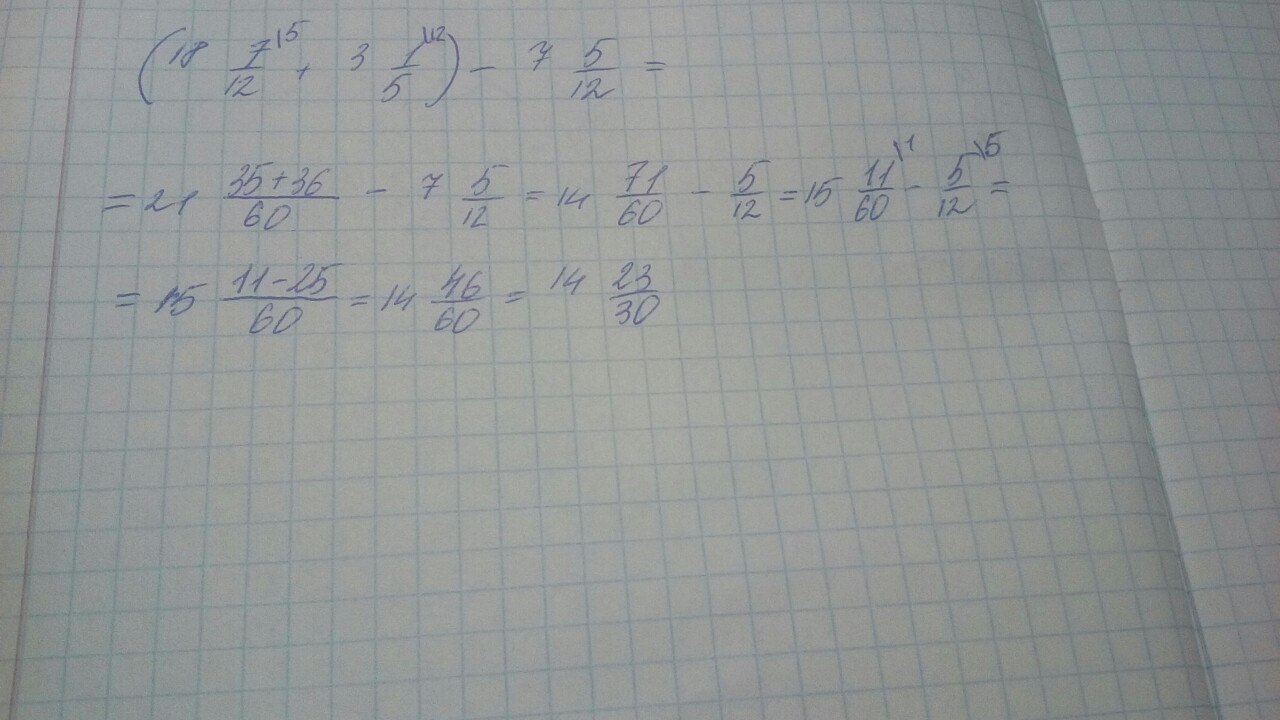 (18 7/12 \5 + 3 1/5 \12) - 7 5/12 =
= 21 35+36/60 - 7 5/12 = 14 71/60 - 5/12 = 15 11/60 \1 - 5/12 \5 =
= 15 11-25/60 = 14 46/60 = 14 23/30